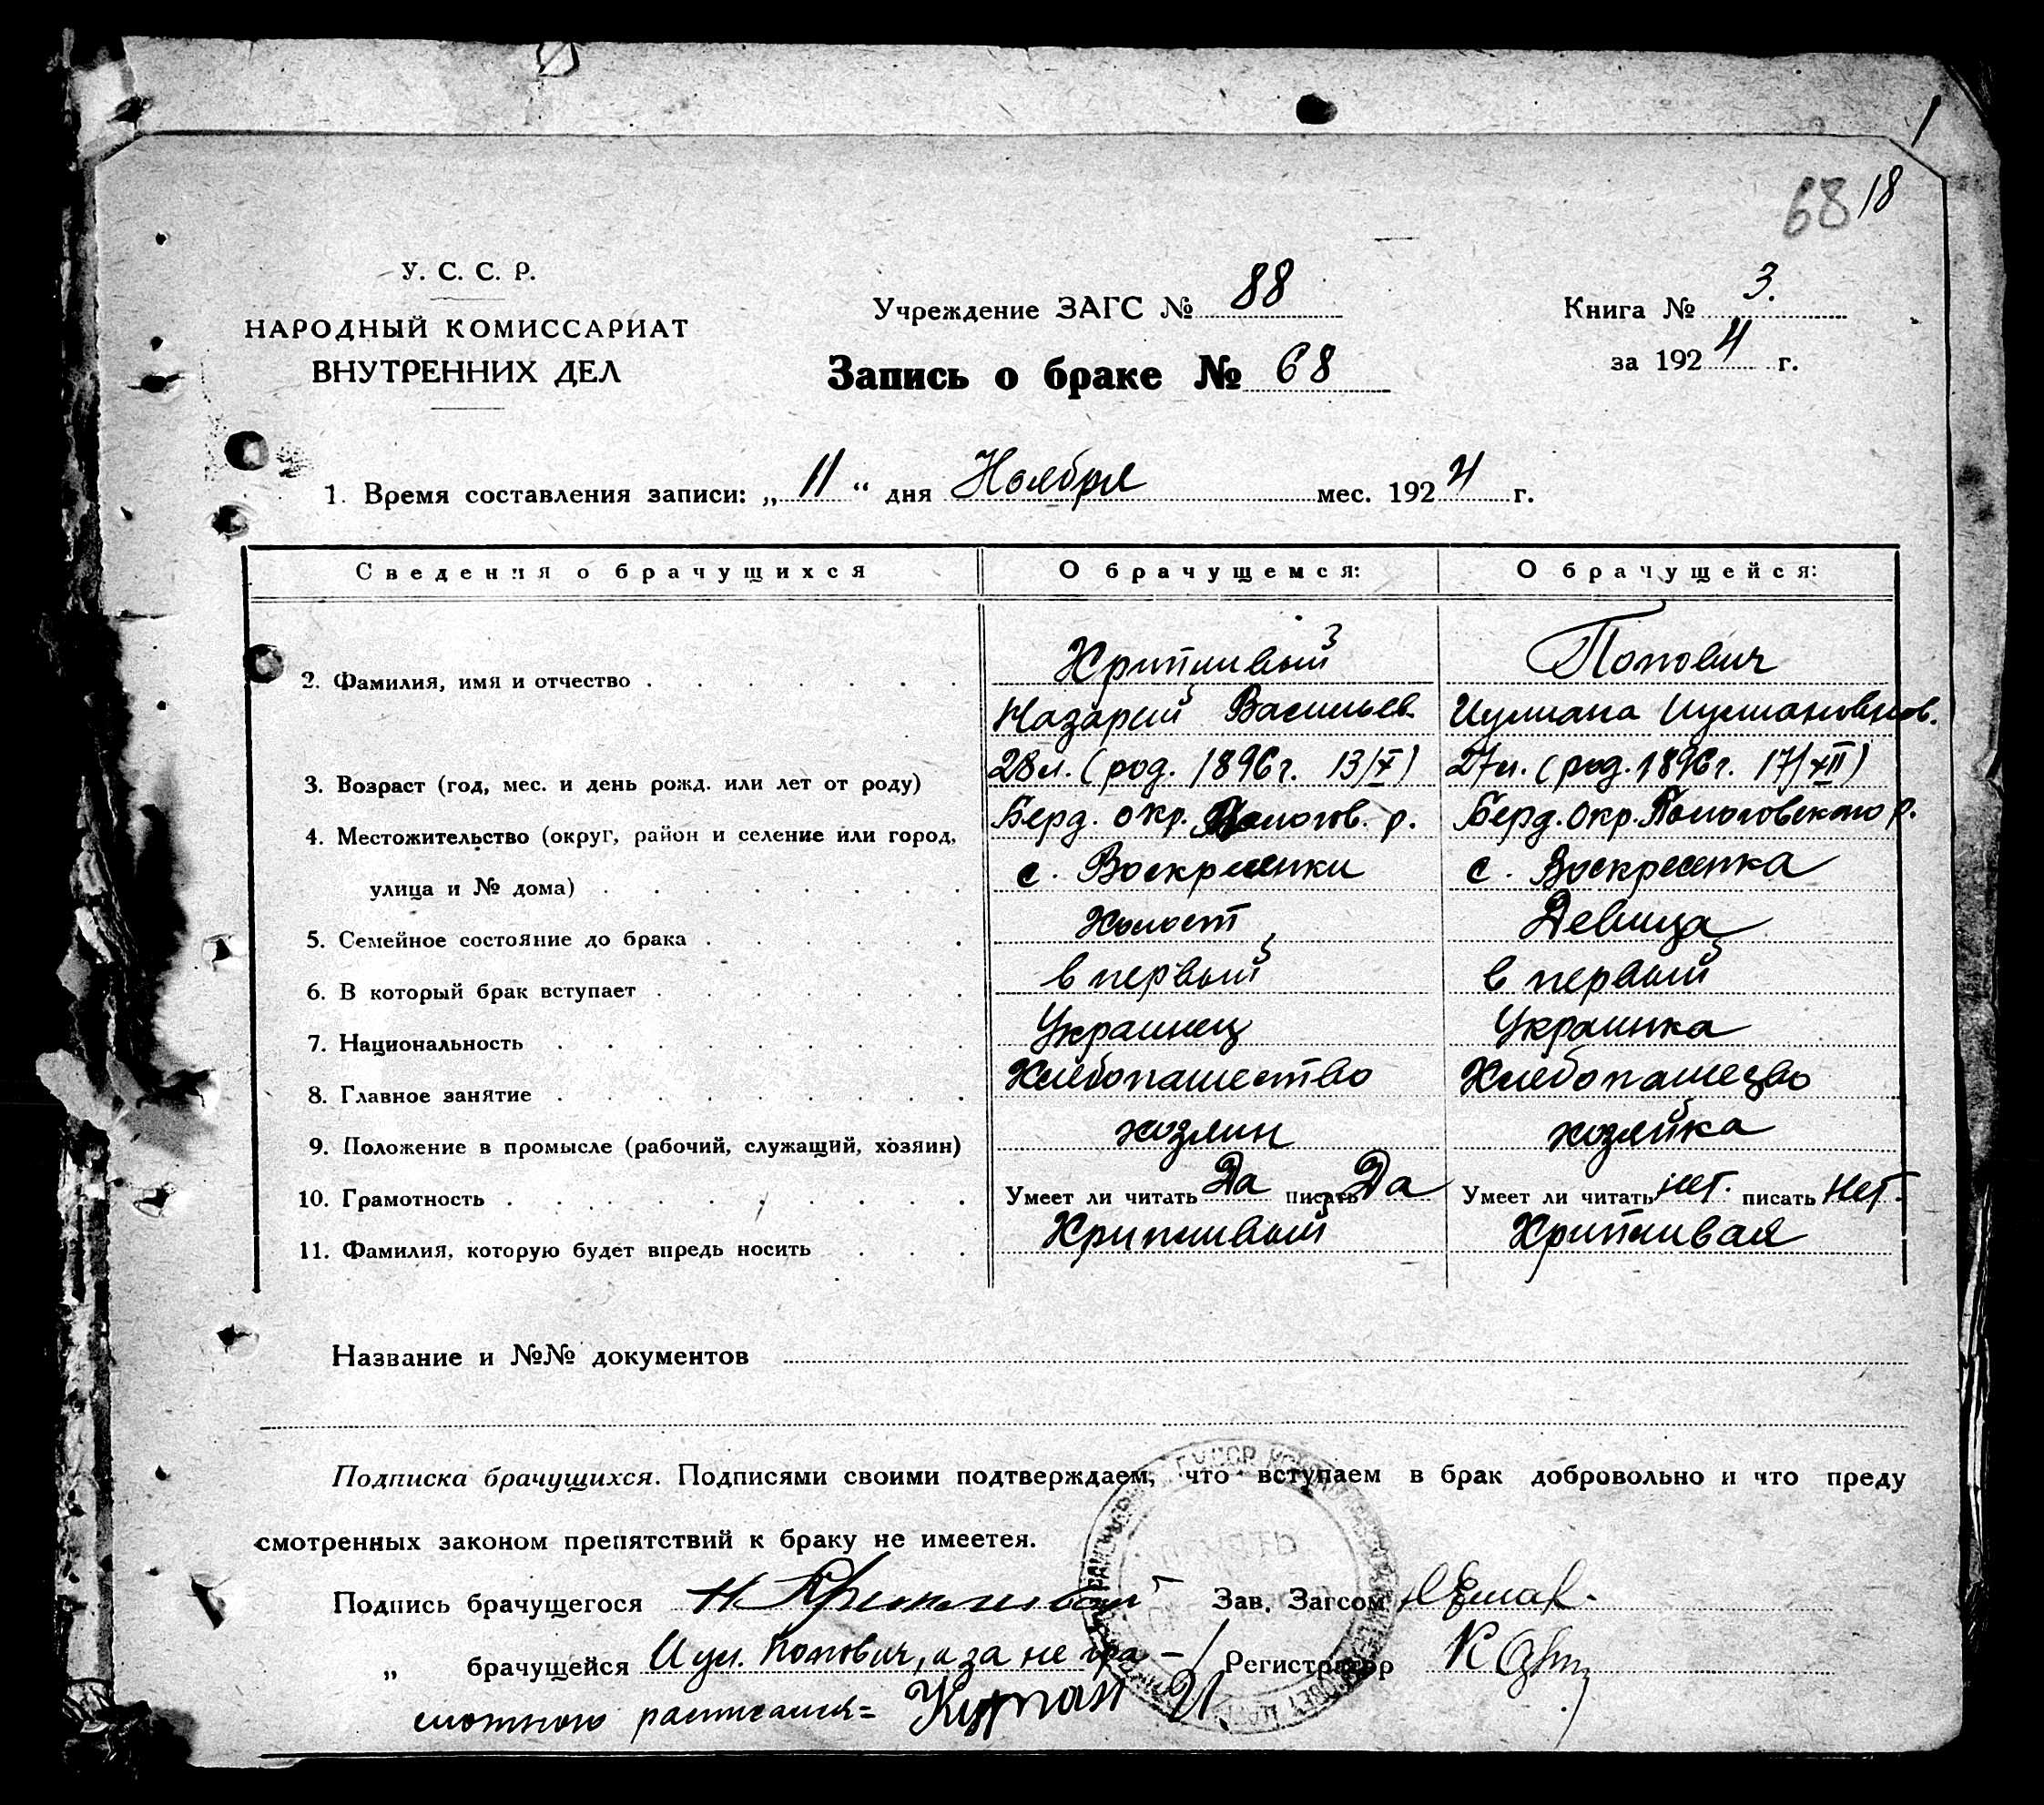 68 18
У. С. С. Р.
НАРОДНЫЙ КОМИССАРИАТ
ВНУТРЕННИХ ДЕЛ
Учреждение ЗАГС № 88
Запись о браке № 68
Книга № 3.
за 1924 г.
1. Время составления записи: „ 11 “ дня Ноября мес. 1924 г.
Сведения о брачущихся О брачущемся: О брачущейся:
2. Фамилия, имя и отчество Хрипливый Попович
Назарий Васильев. Иулиана Иулиановнов.
3. Возраст (год, мес. и день рожд. или лет от роду) 28л. (род. 1896г. 13/X) 27л. (род. 1896г. 17/XII)
4. Местожительство (округ, район и селение или город, Берд. окр. Пологов. р. Берд. окр. Пологовского р.
улица и № дома) с. Воскресенки с. Воскресенка
5. Семейное состояние до брака Холост Девица
6. В который брак вступает в первый в первый
7. Национальность Украинец Украинка
8. Главное занятие Хлебопашество Хлебопашецво
9. Положение в промысле (рабочий, служащий, хозяин) хозяин хозяйка
10. Грамотность Умеет ли читать Да писать Да Умеет ли читать нет. писать Нет.
11. Фамилия, которую будет впредь носить Хрипливый Хрипливая
Название и №№ документов
Подписка брачущихся. Подписями своими подтверждаем, что вступаем в брак добровольно и что преду
смотренных законом препятствий к браку не имеетея.
Подпись брачущегося Н Хрипливый Зав. Загсом
„ брачущейся Иул. Попович, а за не гра- Регистратор
мотною расписался= Курпан И.